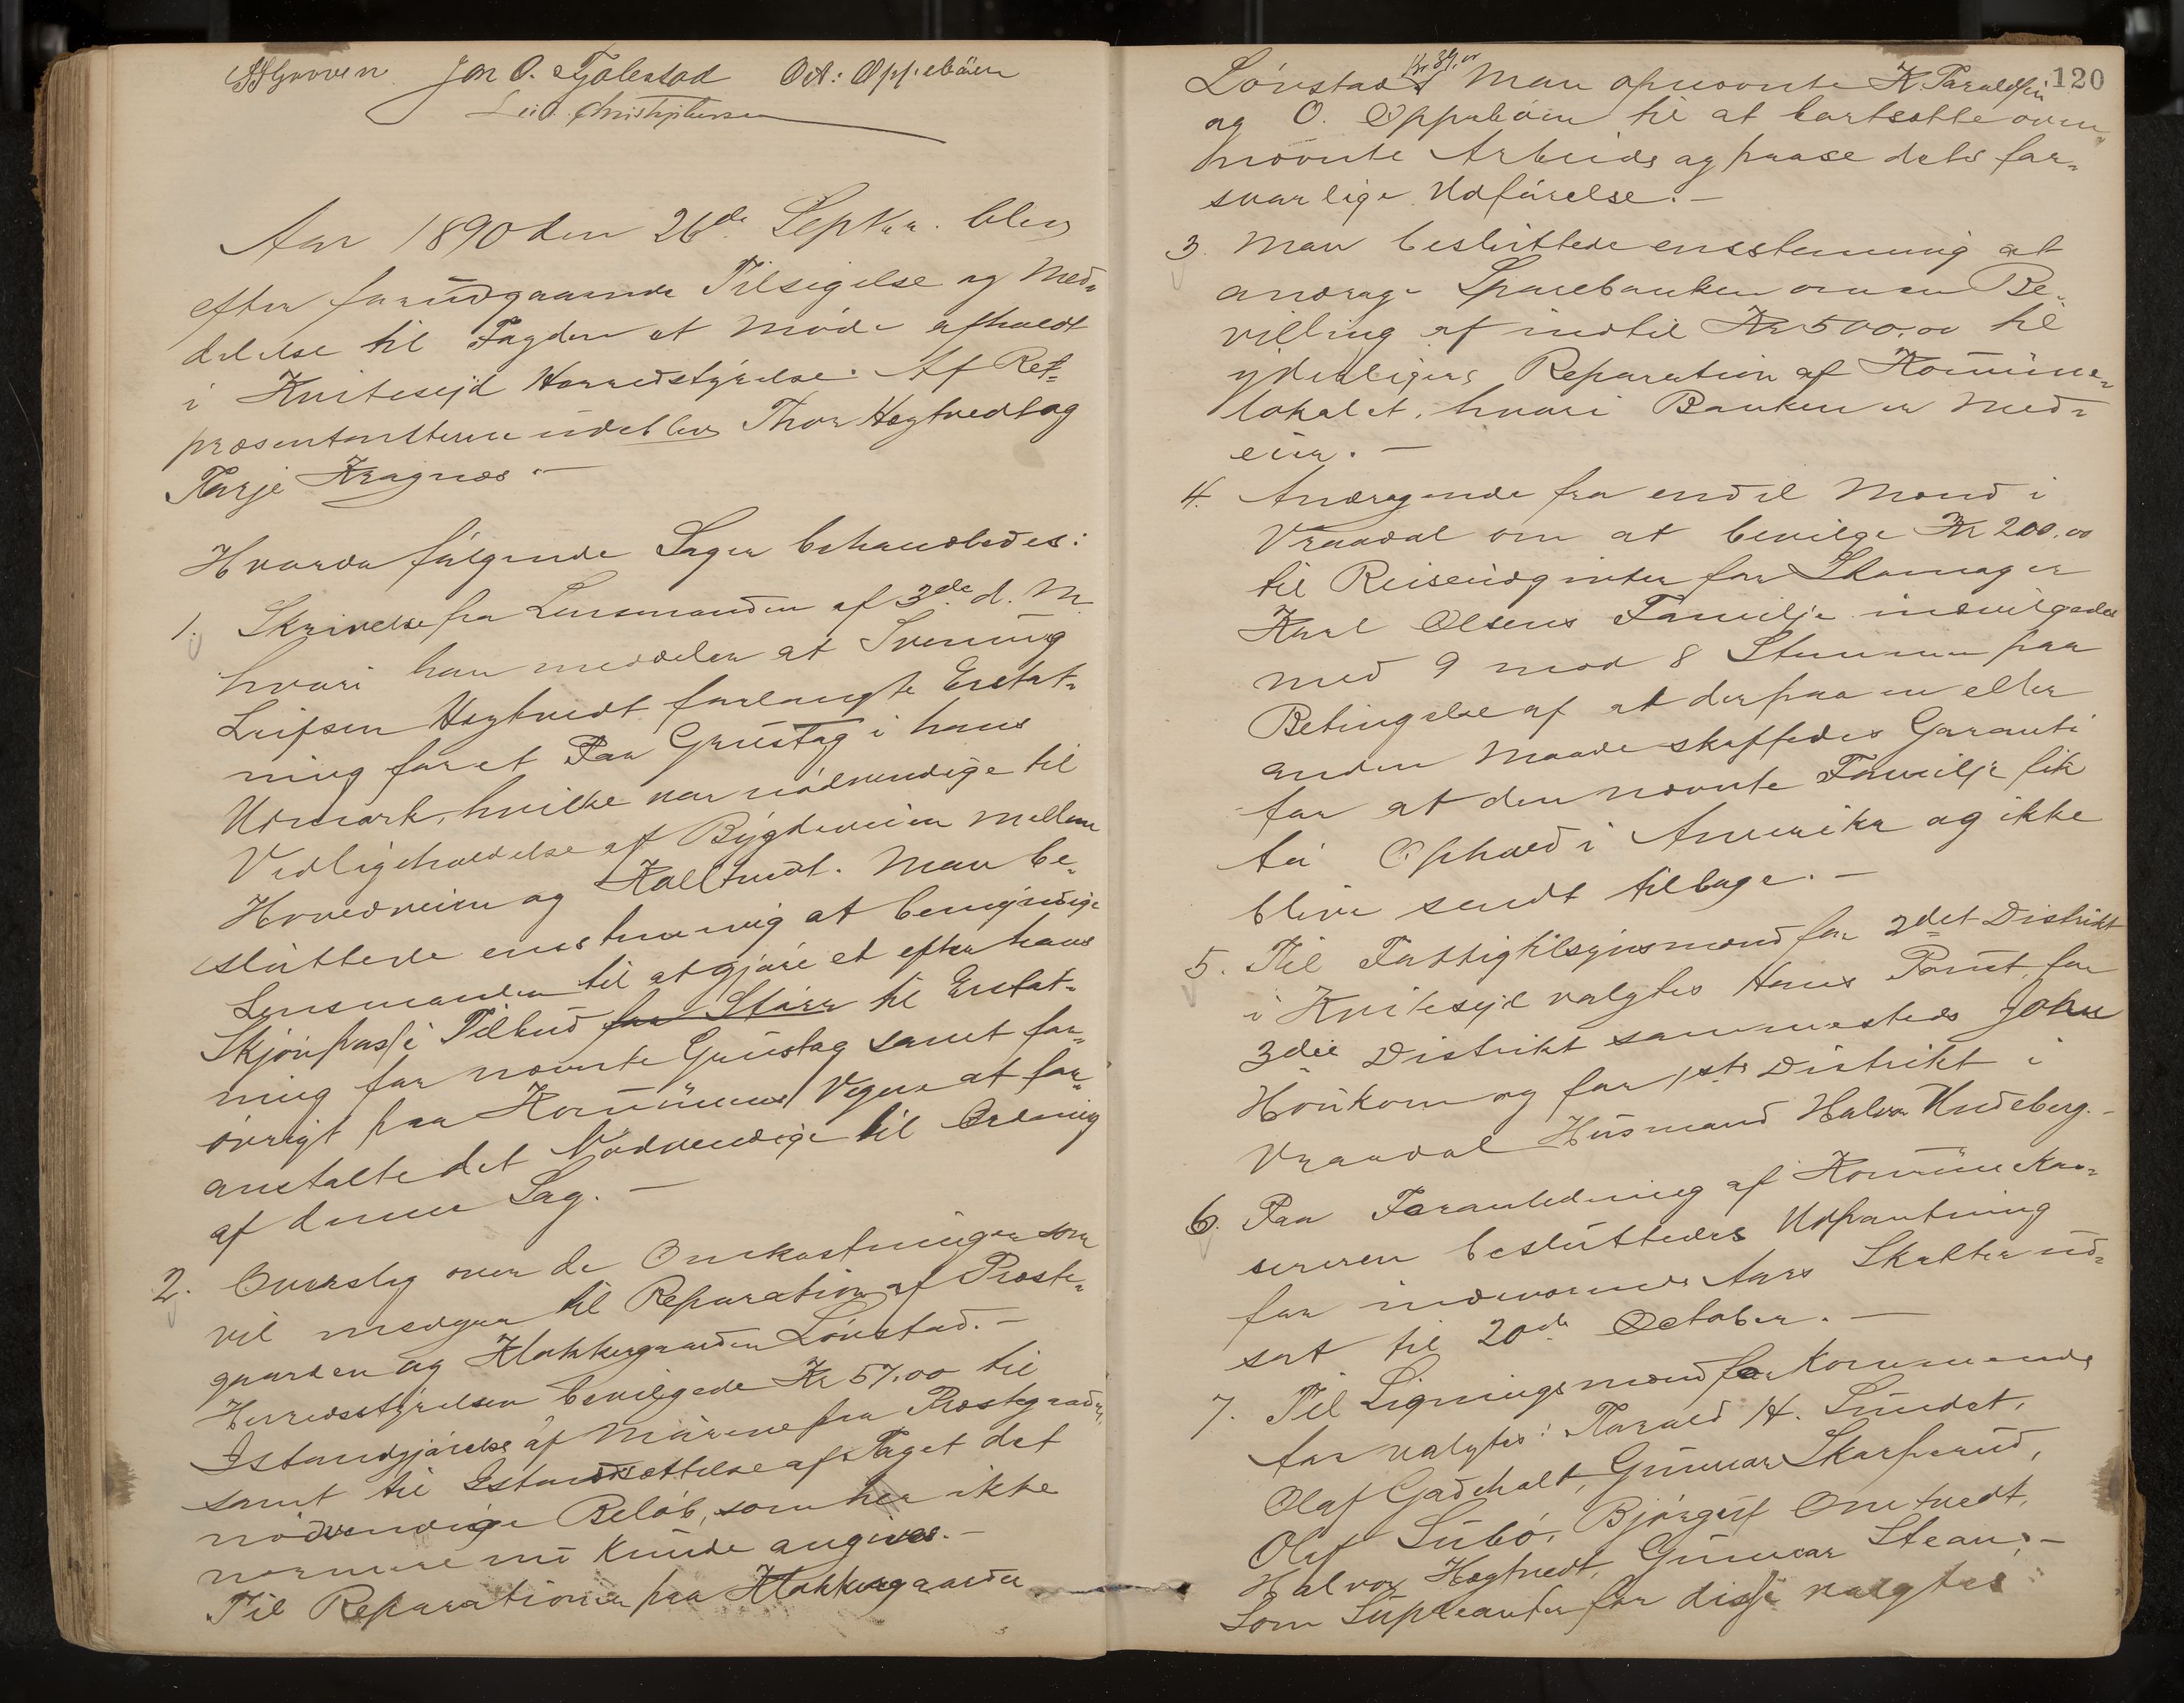 Jon O. Tjalestad Ost: Oppebøen
Leif Christophersen
Aar 1890 den 26de Septbr. blev
efter forudgaaende Tilsigelse og Med-
delelse til Fogden et Møde afholdt
i Kvitesejd Herredstyrelse. Af Re-
præsentanterne udeblev Thor Høgtvedt og
Tarje Kragnæs. —
Hvorda følgende Sager behandledes:
1. Skrivelse fra Lensmanden af 3die d. M.
hvori han meddeler at Svenung
Leifsen Høgtvedt forlangte Erstat-
ning for et Par Grustag i hans
Udmark, hvilke var nødvendige til
Vedligeholdelse af Bygdeveien mellem
Hovedveien og Kaltvedt. Man be-
sluttede enstemmig at bemyndige
Lensmanden til at gjøre et efter hans
Skjøn passe Tilbud for Større til Erstat-
ning for nævnte Grustag samt for-
øvrigt paa Kommunens Vegne at for-
anstalte det Nødvendige til Ordning
af denne Sag. —
2. Overslag over de Omkostninger som
vil medgaa til Reparation af Præste-
gaarden og Klokkergaarden Lønstad. —
Herredsstyrelsen bevilgede Kr 57,00 til
Istandgjørelse af Murene paa Præstegaarden,
samt til Istandsættelse af Taget det
nødvendige Beløb, som her ikke
nærmere nu kunde angives. —
Til Reparationen paa Klokkergaarden
120
Lønstad Kr 89,00 Man opnævnte K. Taraldsen
og O. Oppebøen til at bortsætte oven-
nævnte Arbeide og paase dets for-
svarlige Udførelse. —
3. Man besluttede enstemmig at
andrage Sparebanken om en Be-
villing af indtil Kr 500,00 til
yderligere Reparation af Kommune-
lokalet, hvori Banken er Med-
eier. —
4. Andragende fra endel Mænd i
Vraadal om at bevilge Kr 200,00
til Reiseudgifter for Skomager
Karl Olsens Familje indvilgedes
med 9 mod 8 Stemmer paa
Betingelse af at der paa en eller
anden Maade skaffedes Garanti
for at den nævnte Familje fik
ta Ophold i Amerika og ikke
blive sendt tilbage. —
5. Til Fattigtilsynsmænd for 2det Distrikt
i Kvitesejd valgtes Hans for
3die Distrikt sammesteds John
Haukom og for 1ste Distrikt i
Vraadal Husmand Halvor Undeberg. —
6. Paa Foranledning af Kommunekas-
sereren besluttedes Udpantning
for indeværende Aars Skatter ud-
sat til 20de October. —
7. Til Ligningsmænd for kommende
Aar valgtes: Tarald H. Sundet,
Olaf Gadehalt, Gunnar Skarprud,
Olaf Subø, Bjørgulf Omtvedt,
Halvor Høgtvedt, Gunnar Stean, —
Som Supleanter for disse valgtes